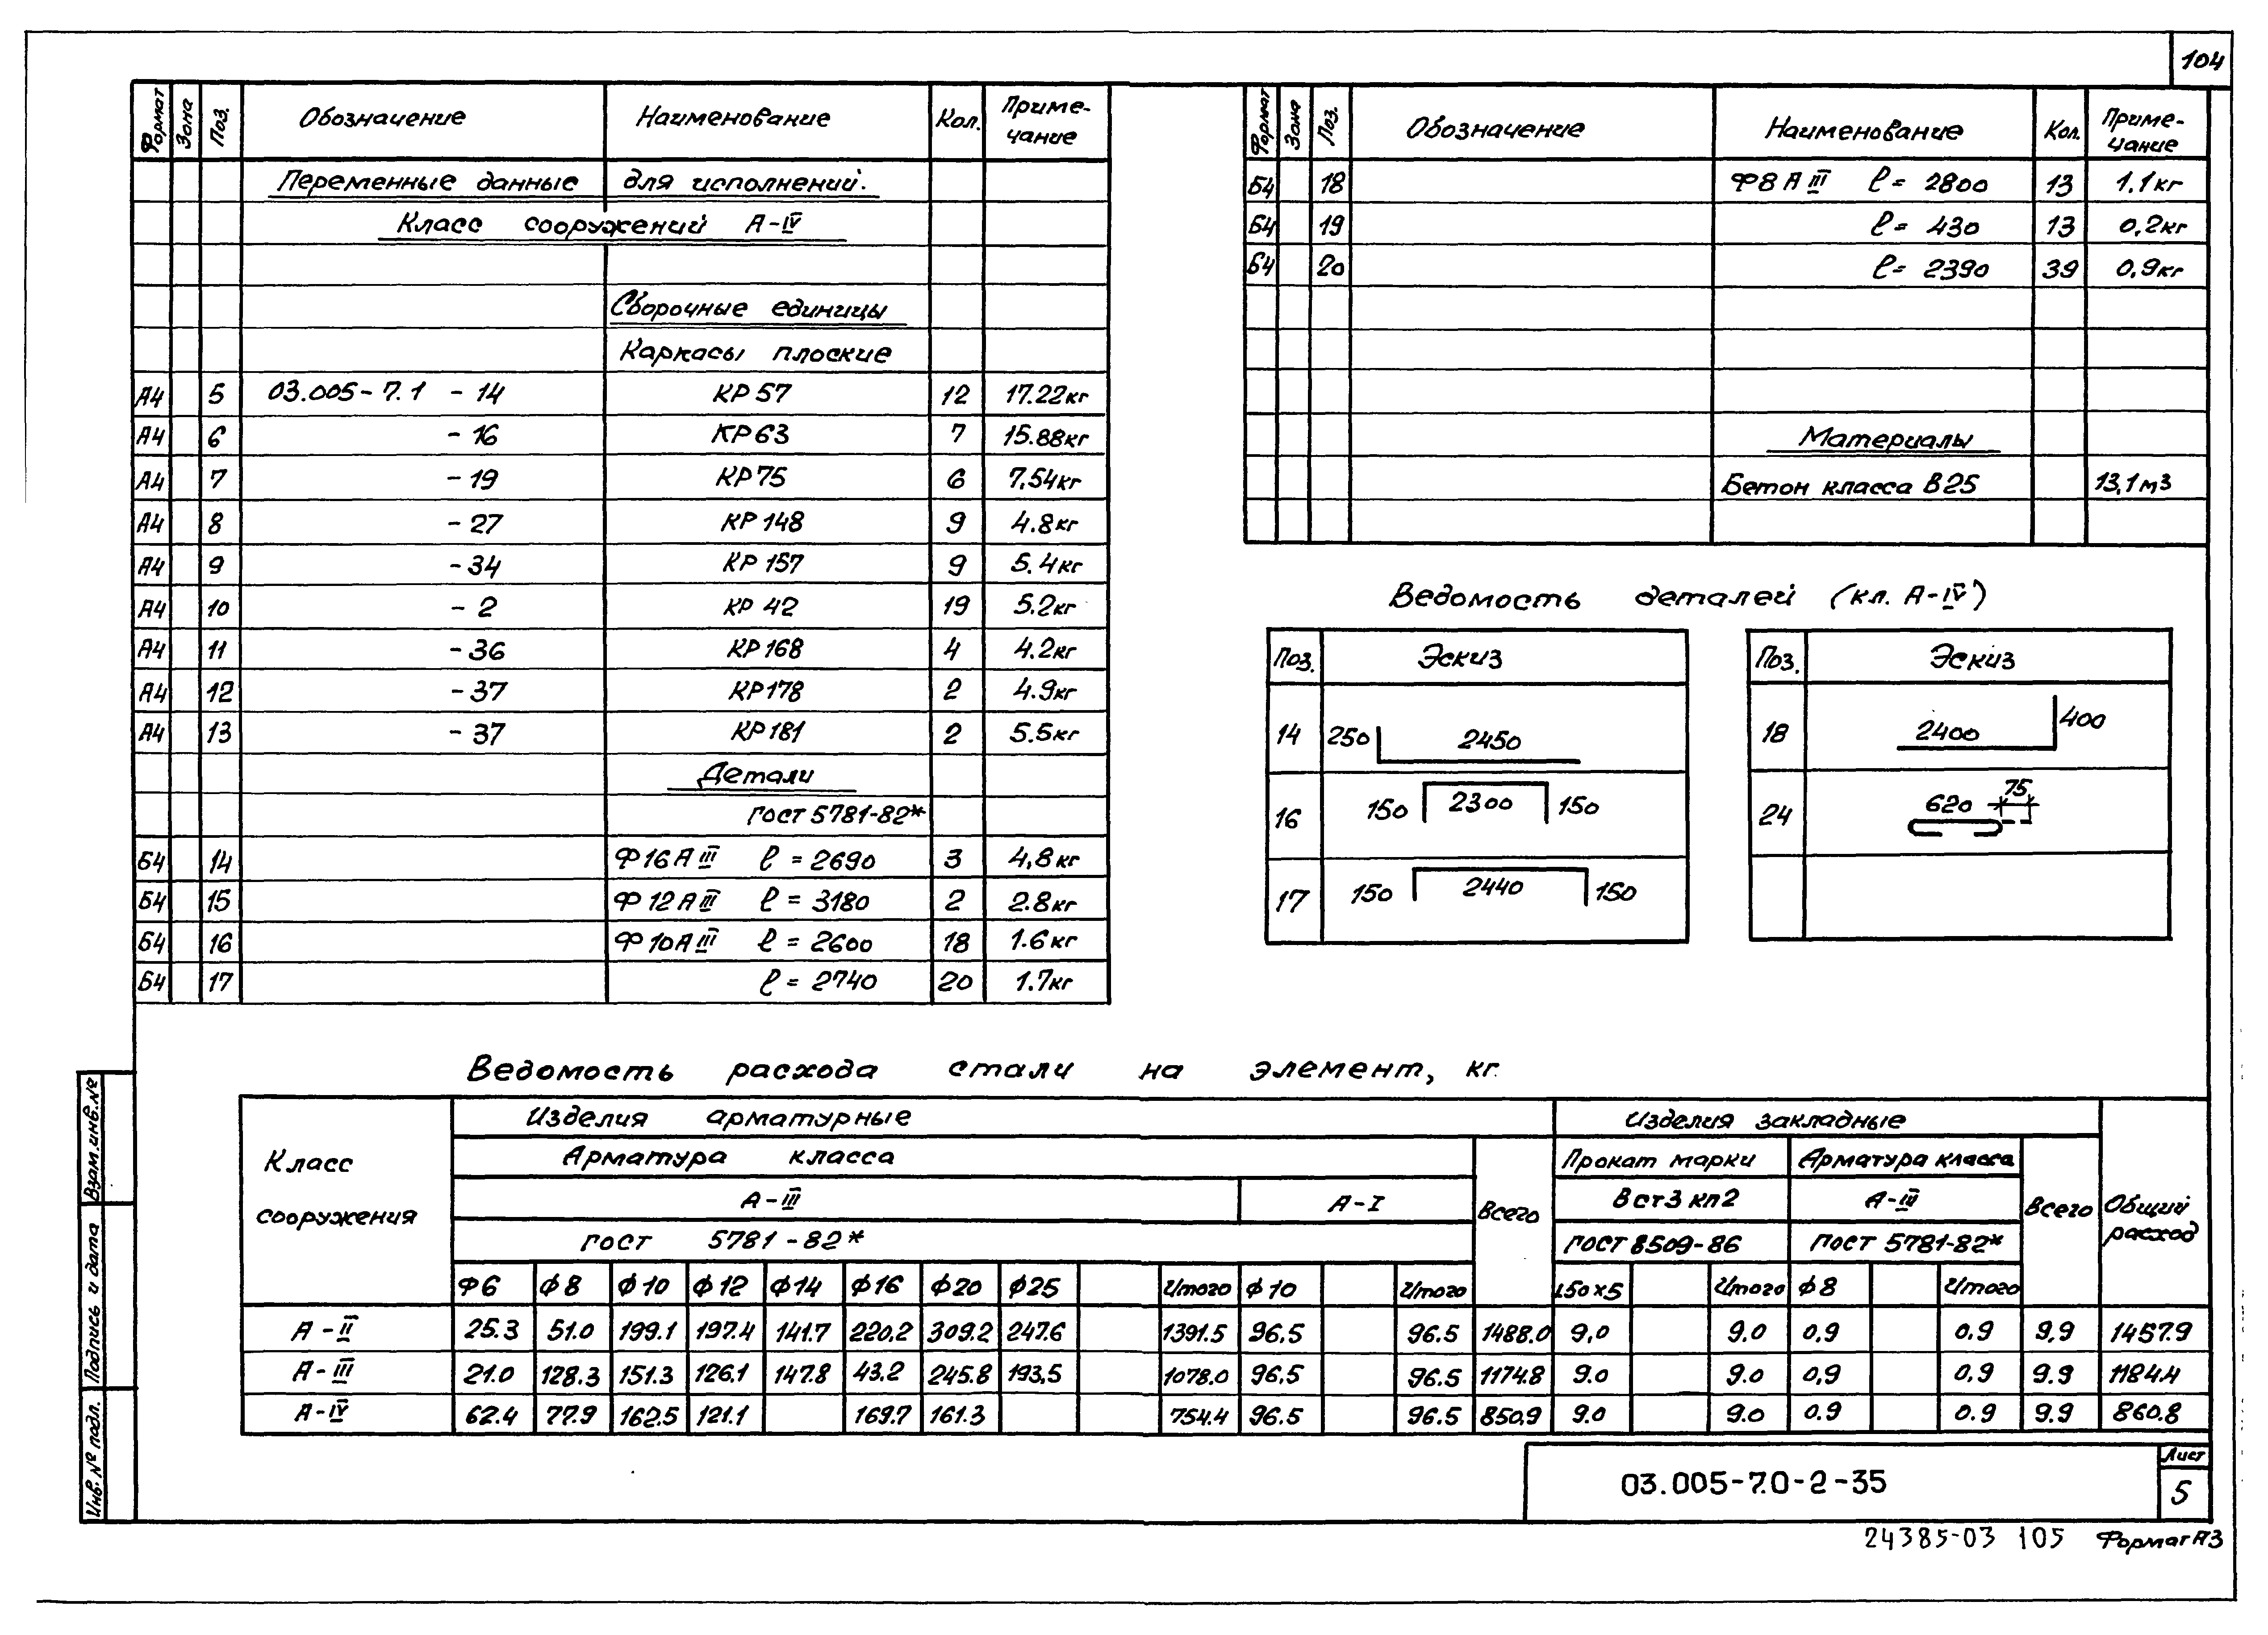 104
Формат Зона Поз. Обозначение Наименование Кол. Приме-чание
Переменные данные для исполнений.
Класс сооружений А-IV
Сборочные единицы
Каркасы плоские
А4 5 03.005-7.1 -14 КР57 12 17.22кг
А4 6 -16 КР63 7 15.88кг
А4 7 -19 КР75 6 7,54кг
А4 8 -27 КР148 9 4.8кг
А4 9 -34 КР157 9 5.4кг
А4 10 -2 КР 42 19 5.2кг
А4 11 -36 КР168 4 4.2кг
А4 12 -37 КР178 2 4.9кг
А4 13 -37 КР181 2 5.5кг
Детали
ГОСТ 5781-82*
Б4 14 Ф16АIII ℓ=2690 3 4,8кг
Б4 15 Ф12АIII ℓ=3180 2 2.8кг
Б4 16 Ф10АIII ℓ=2600 18 1.6кг
Б4 17 ℓ=2740 20 1.7кг
Формат Зона Поз. Обозначение Наименование Кол. Приме-чание
Б4 18 Ф8АIII ℓ=2800 13 1.1кг
Б4 19 ℓ=430 13 0,2кг
Б4 20 ℓ=2390 39 0,9кг
Материалы
Бетон класса В25 13,1м3
Ведомость деталей (кл. А-IV)
Поз. Эскиз
14 250 2450
16 150 2300 150
17 150 2440 150
Поз. Эскиз
18 2400 400
24 620 75
Ведомость расхода стали на элемент, кг.
Класс сооружения
Изделия арматурные Изделия закладные Общий расход
Арматура класса Всего Прокат марки Арматура класса Всего
А-III А-I Вст3кп2 А-IV
ГОСТ 5781-82* ГОСТ 8509-86 ГОСТ 5781-82*
Ф6 ф8 ф10 ф12 ф14 ф16 ф20 ф25 Итого ф10 Итого L50×5 Итого ф8 Итого
А-II 25.3 51.0 199.1 197.4 141.7 220.2 309.2 247.6 1391.5 96.5 96.5 1488.0 9,0 9.0 0.9 0.9 9,9 1457.9
А-III 21.0 128.3 151.3 126.1 147.8 43.2 245.8 193.5 1078.0 96.5 96.5 1174.8 9.0 9.0 0,9 0.9 9.9 1184.4
А-IV 62.4 77.9 162.5 121.1 169.7 161.3 754.4 96.5 96.5 850.9 9.0 9.0 0.9 0.9 9.9 860.8
Взам.инв.№
Подпись и дата
Инв.№ подл.
03.005-7.0-2-35
Лист
5
24385-03 105 Формат А3